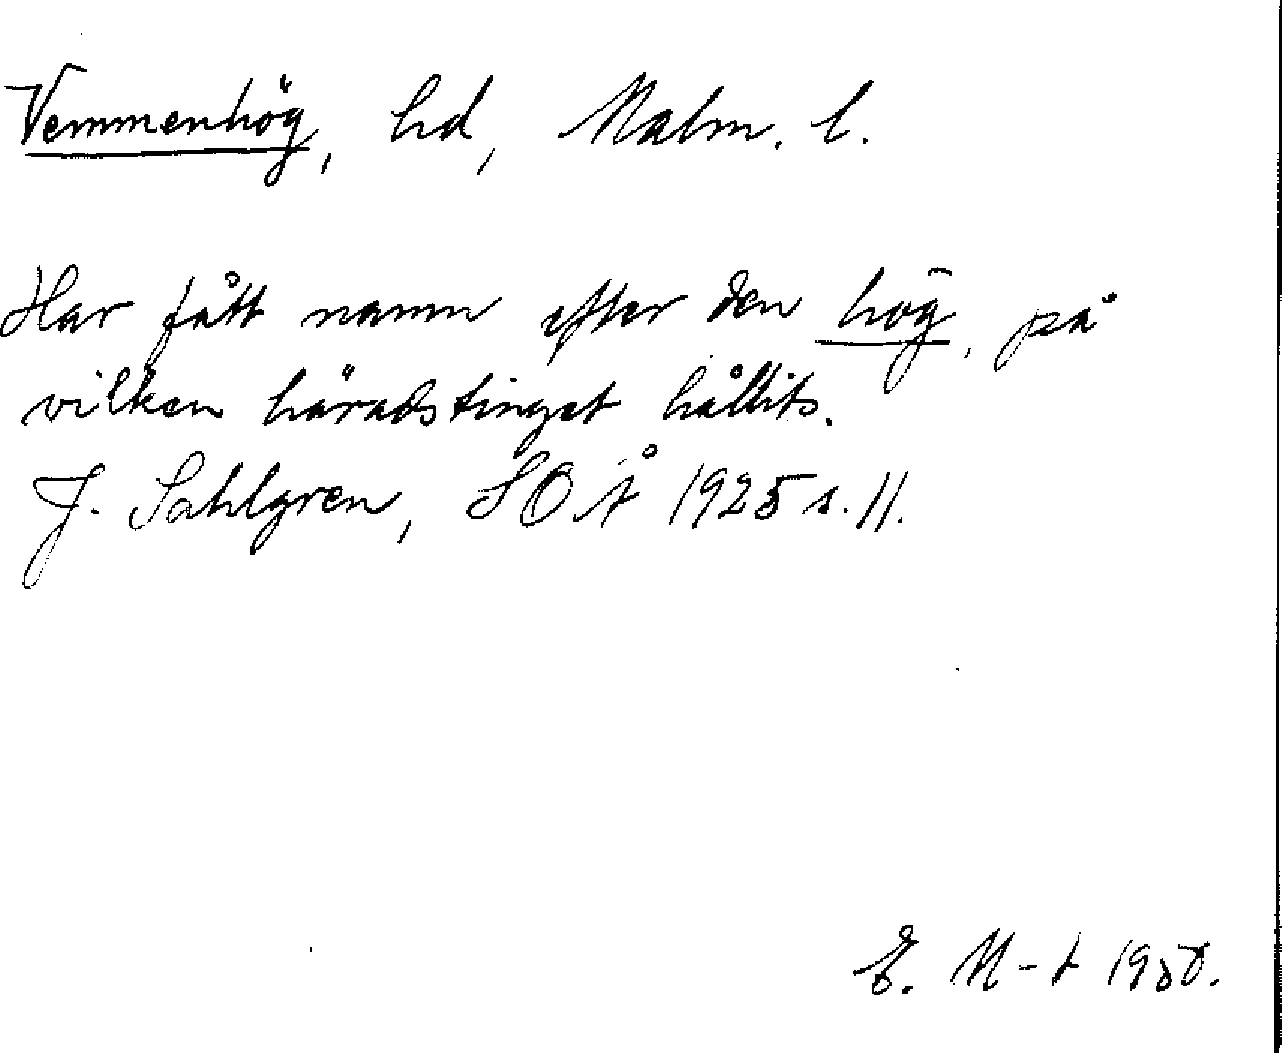 Vemmenhög, hd, Malm. l.
Har fått namn efter den hög, på
vilken häradstinget hållits.
J. Sahlgren, SOÅ 1925 s. 11.
E. M-t 1950.